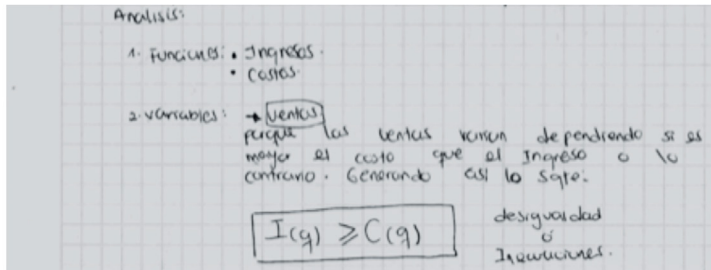 Analisis:
1. Funciones: • Ingresos.
• Costos.
2. variables: → ventas
porque las ventas varian dependiendo si es
mayor el costo que el Ingreso o lo
contrario. Generando asi lo sgte:
I(q) ≥ C(q)
desigualdad
ó
Inecuaciones.